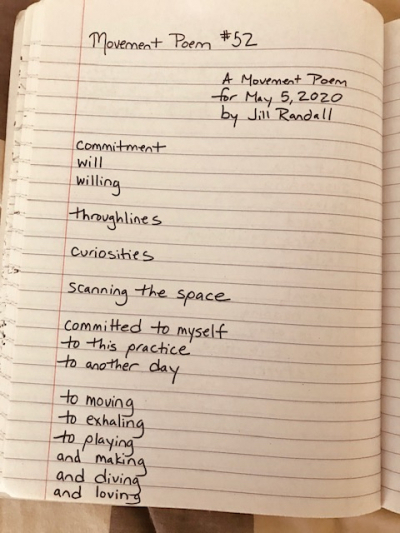 Movement Poem #52
A Movement Poem
for May 5, 2020
by Jill Randall
commitment
will
willing
throughlines
curiosities
scanning the space
committed to myself
to this practice
to another day
to moving
to exhaling
to playing
and making
and diving
and loving